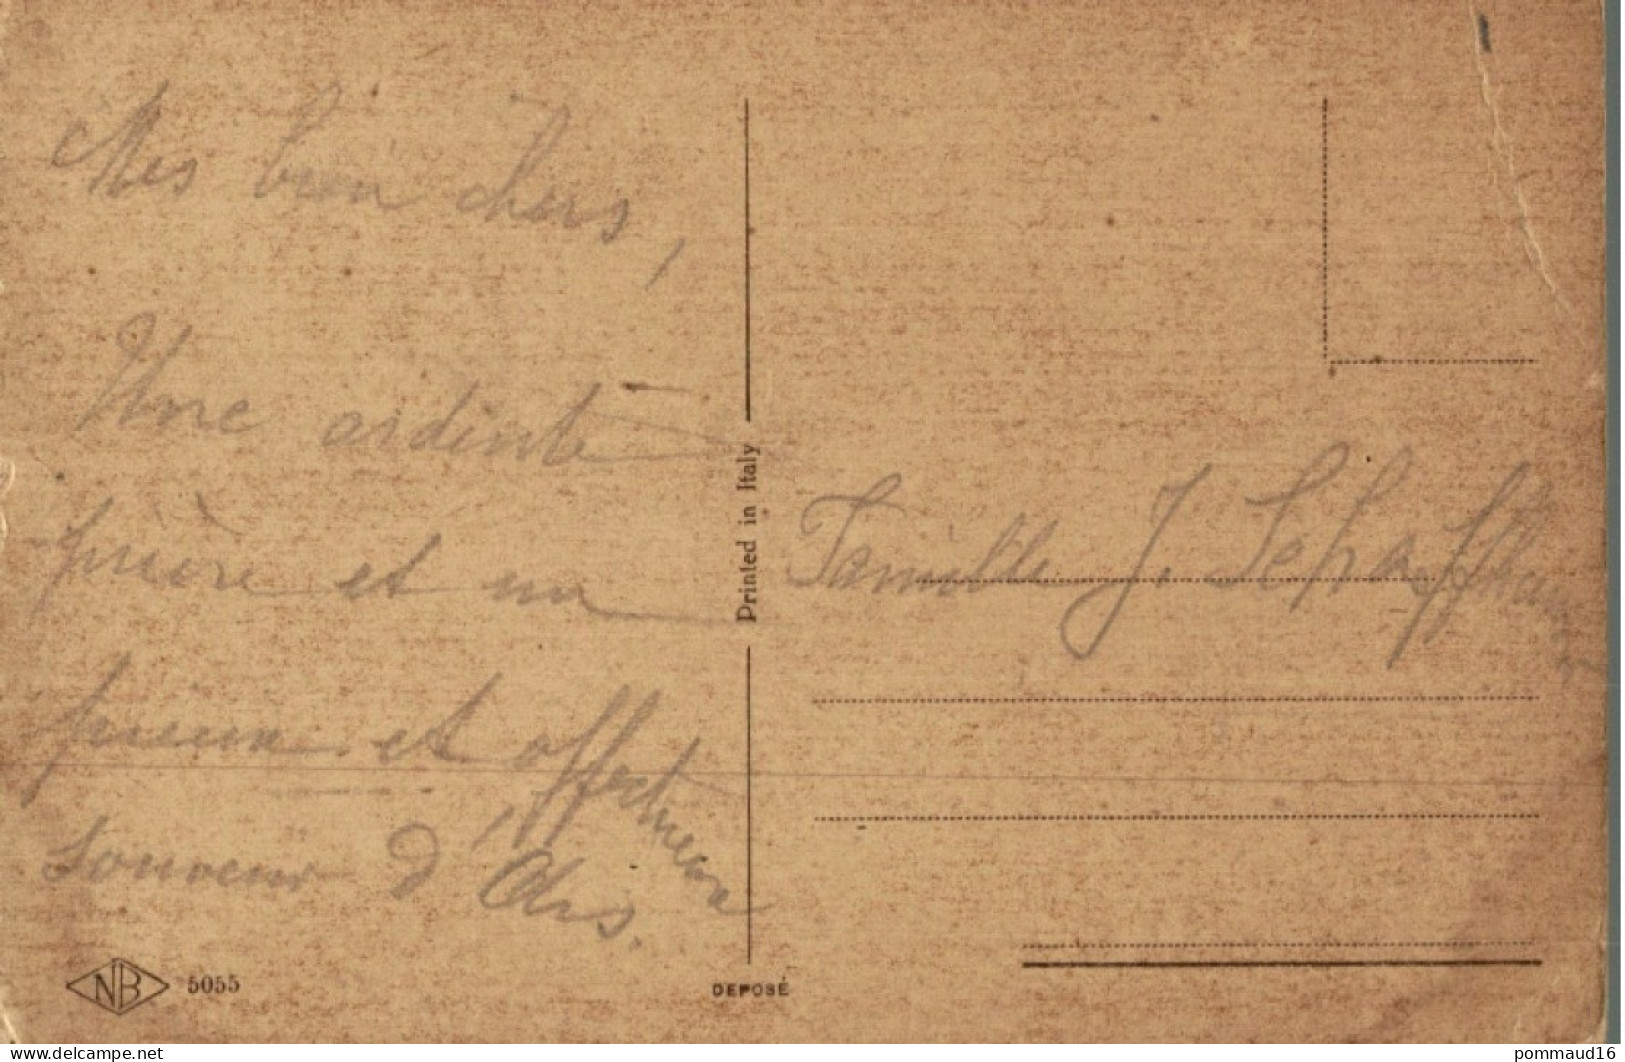 Mes bien chers,
Une ardente
prière et un
pieux et affectueux
souvenir d'Ars.
Famille J. Schaff
Printed in Italy
NB 5055
DEPOSÉ
www.delcampe.net
pommaud16